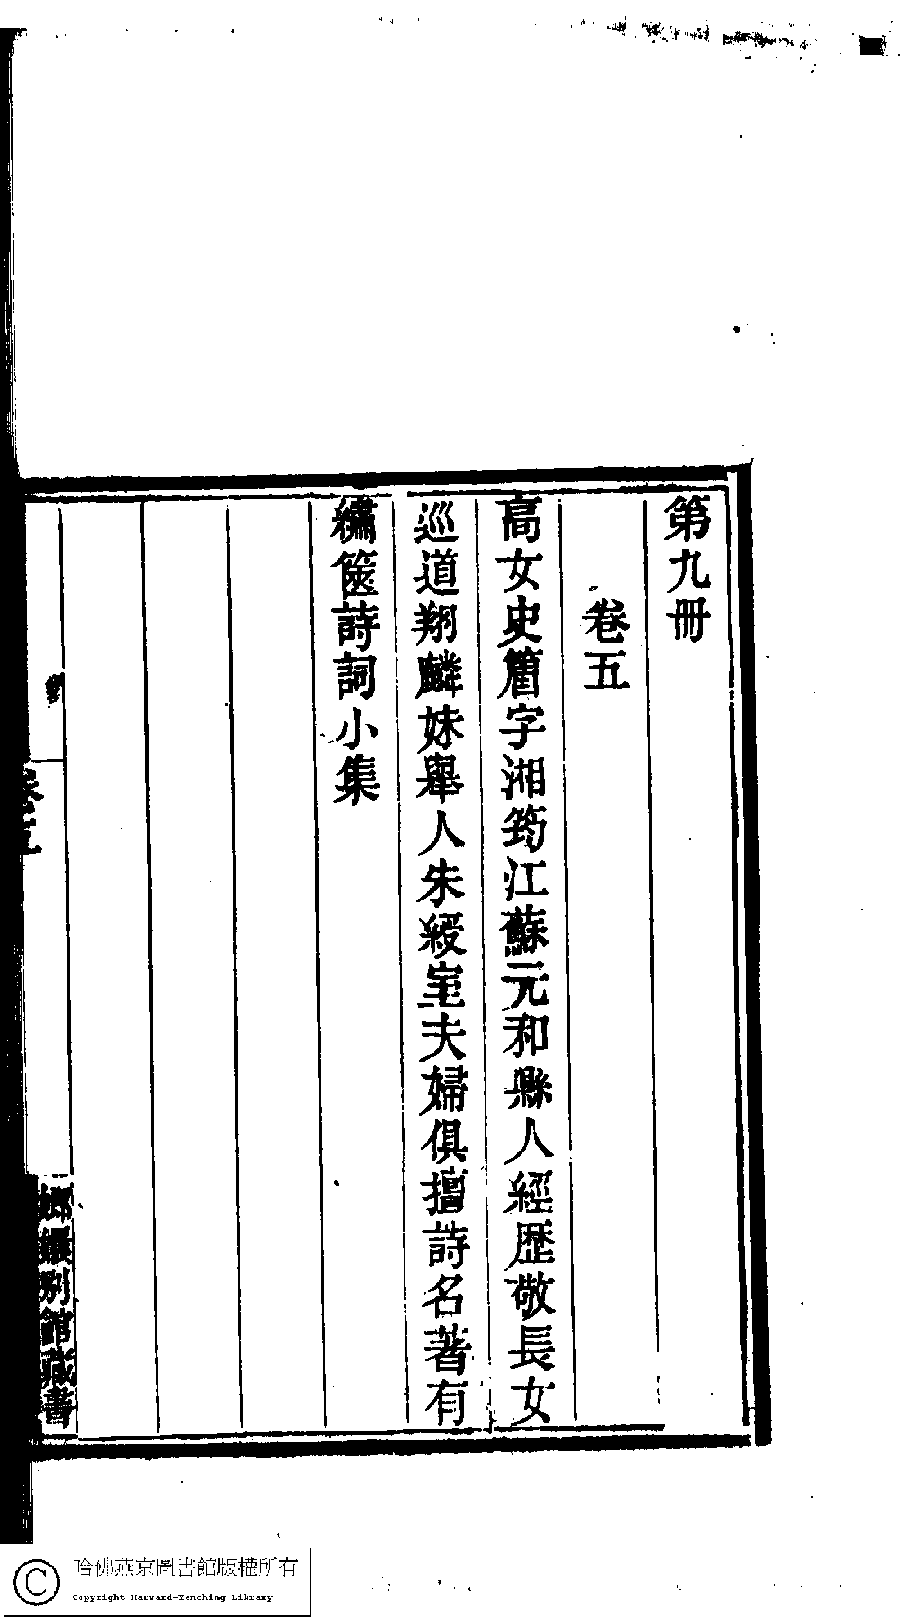 第九冊
卷五
高女史簡字湘筠江蘇元和縣人經歷敬長女
巡道翔麟妹舉人朱綬室夫婦俱擅詩名著有
繡篋詩詞小集
卷五
嫏嬛別館藏書
哈佛燕京圖書館版權所有
Copyright Harvard-Yenching Library